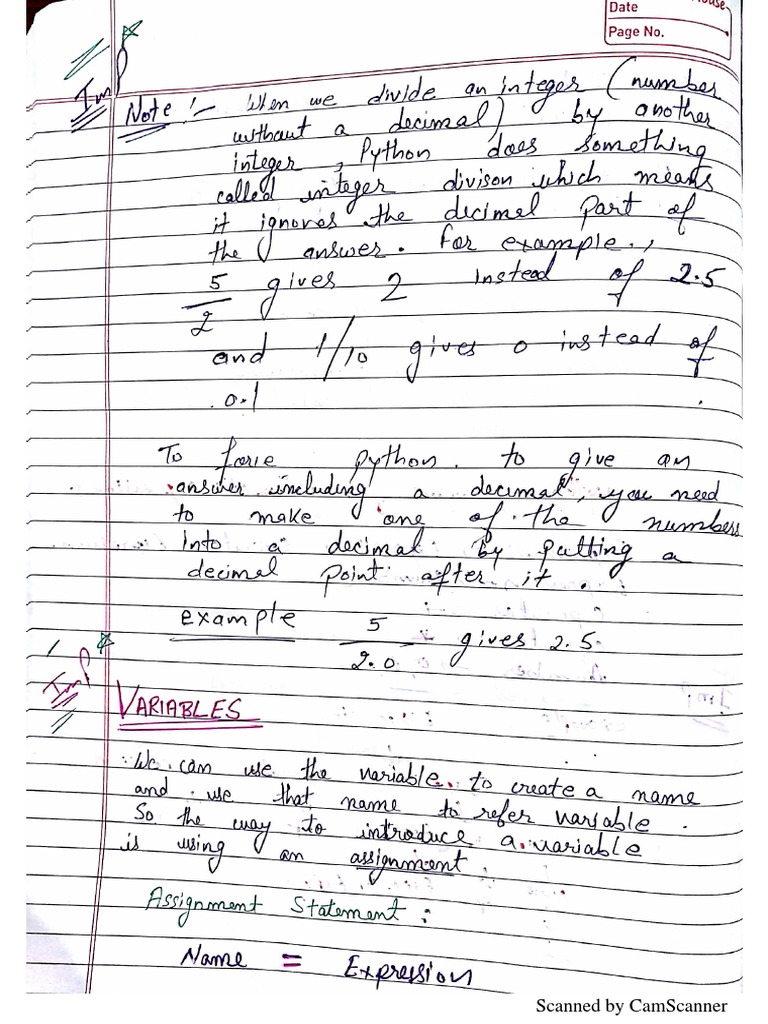 House
Date
Page No.
Imp
Note :- When we divide an integer (number
without a decimal) by another
integer, Python does something
called integer divison which means
it ignores the decimal part of
the answer. For example.,
5/2 gives 2 instead of 2.5
and 1/10 gives 0 instead of
0.1
To force python to give an
answer including a decimal, you need
to make one of the numbers
into a decimal by putting a
decimal point after it.
example 5/2.0 gives 2.5.
Imp
VARIABLES
We can use the variable to create a name
and use that name to refer variable.
So the way to introduce a variable
is using an assignment.
Assignment Statement :
Name = Expression
Scanned by CamScanner